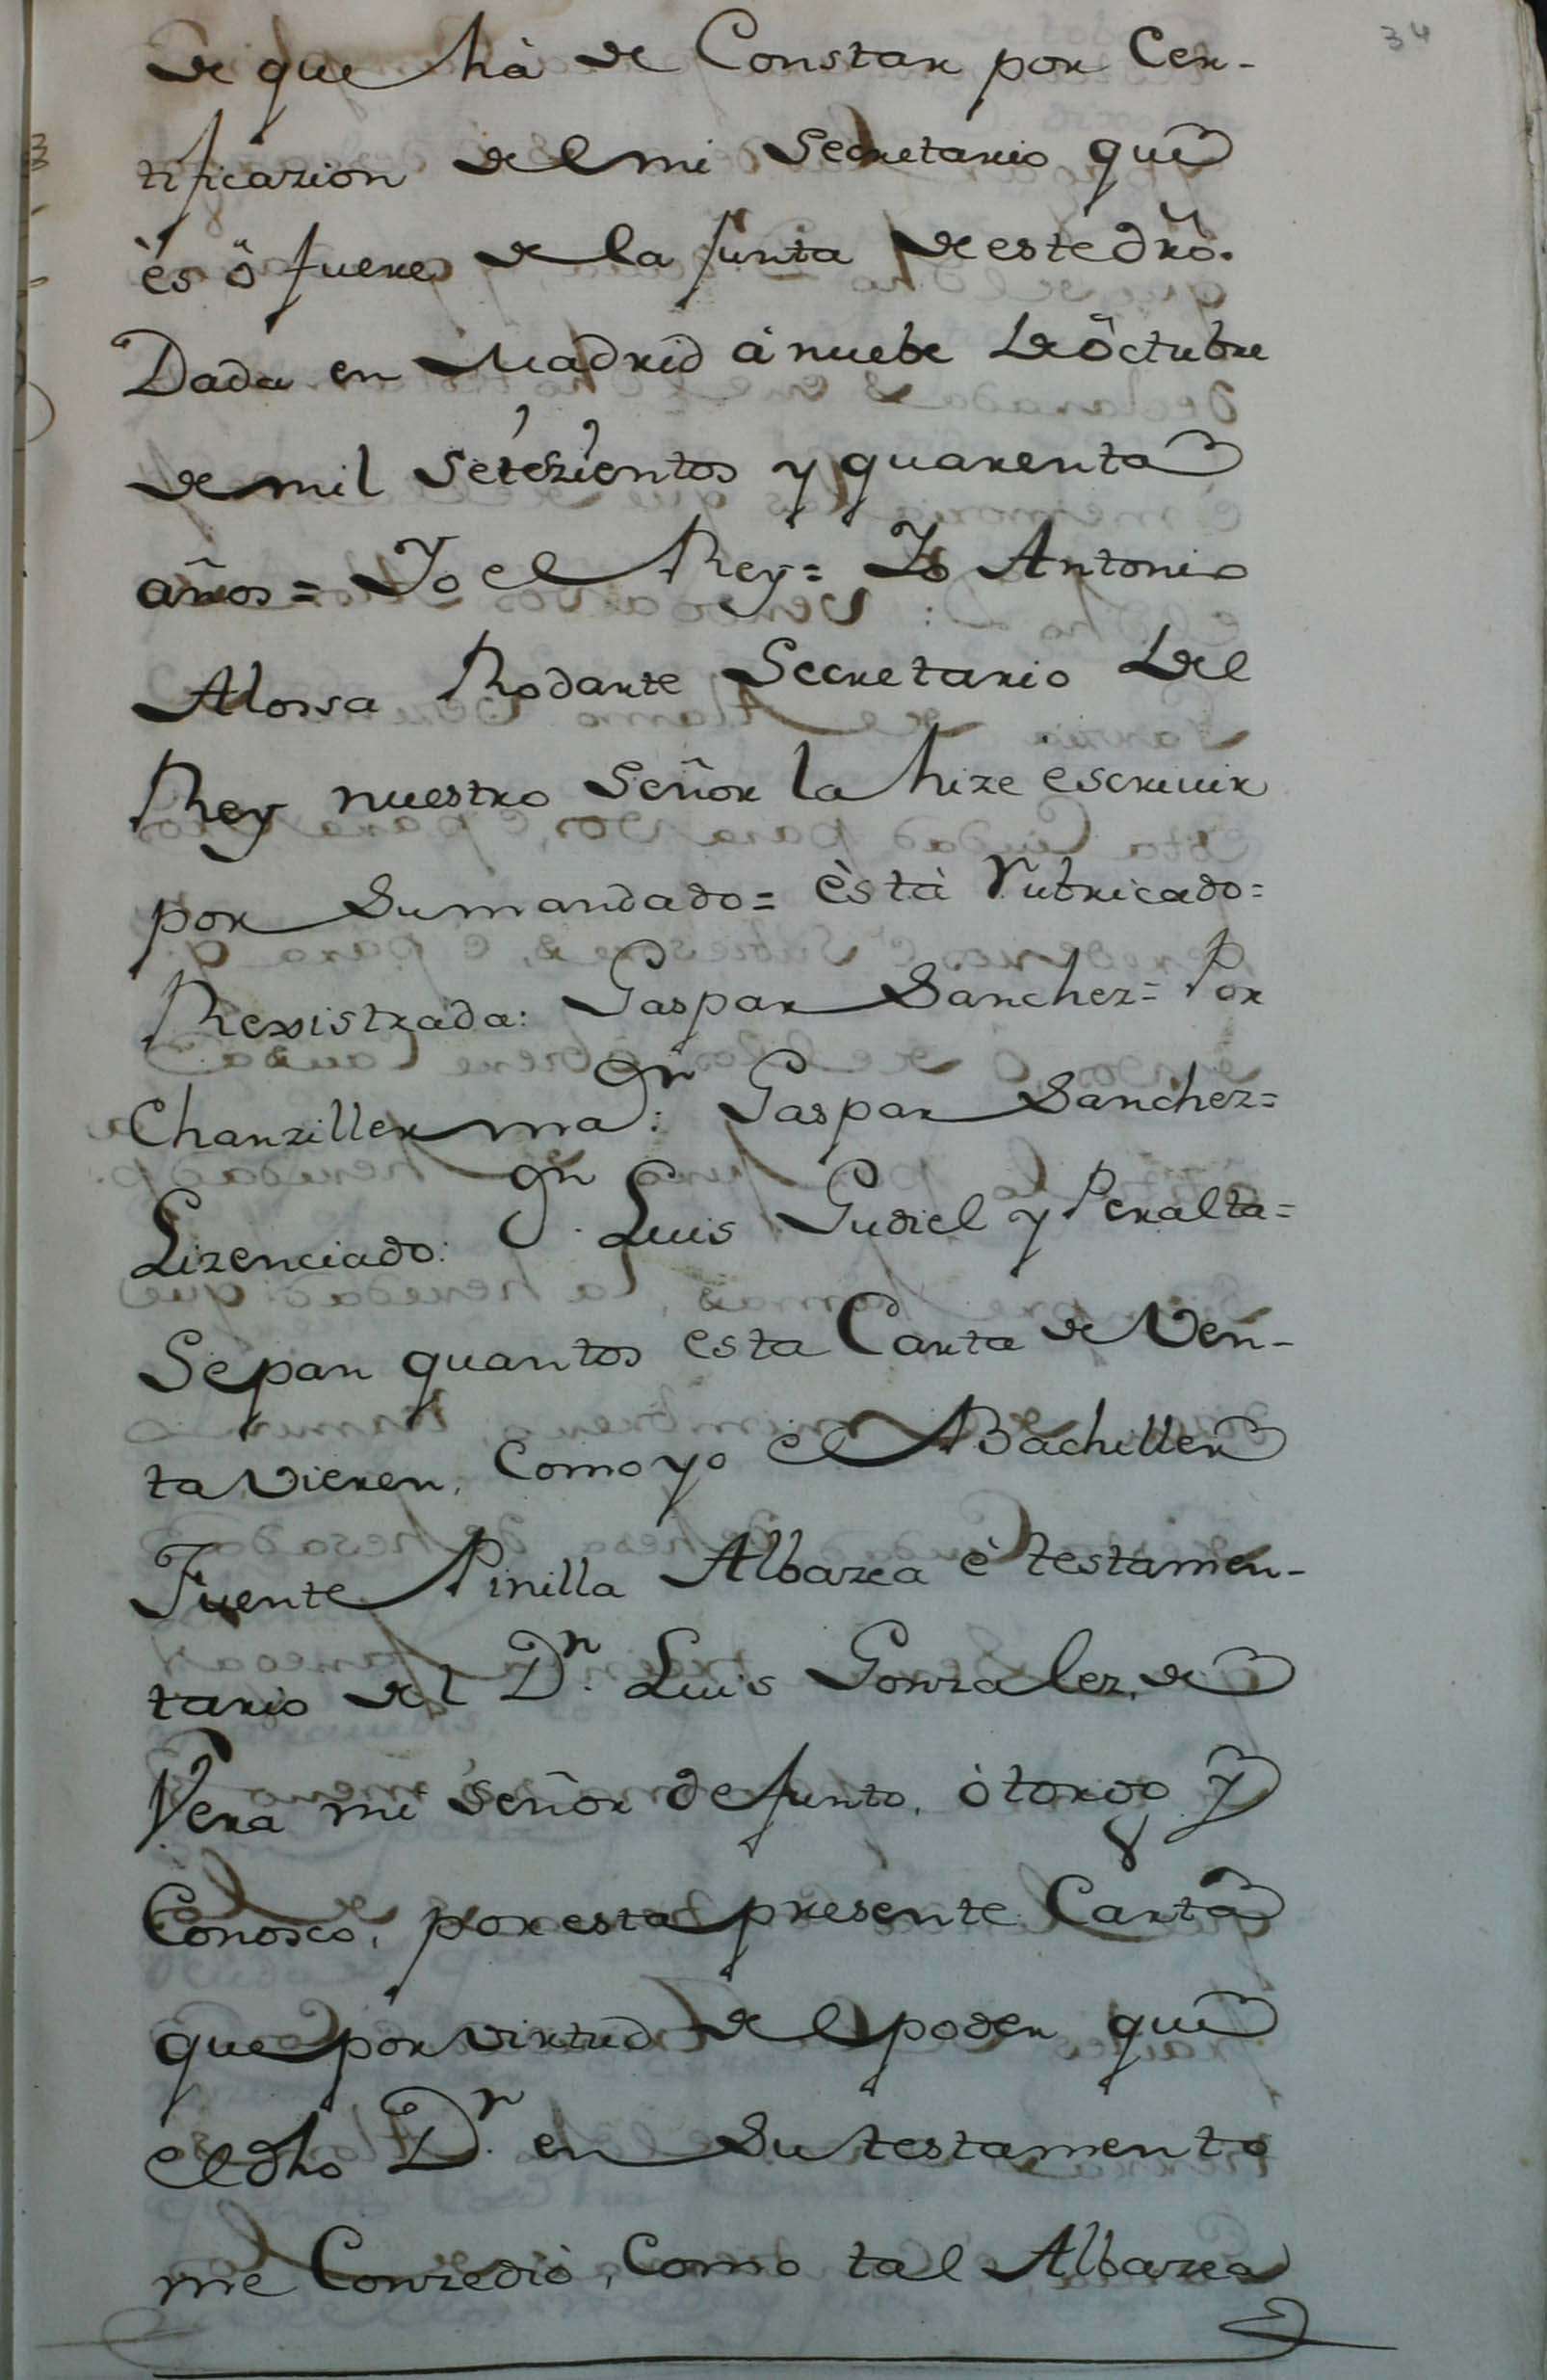 34
de que hà de Constar por Cer-
tificazion del mi Secretario que
ès ö fuere de la Junta de este dro.
Dada en Madrid à nuebe de öctubre
de mil setezientos y quarenta
años = Yo el Rey = Yo Antonio
Alossa Rodarte Secretario del
Rey nuestro Señor la hize escriuir
por Su mandado = èstà rubricado =
Rexistrada: Gaspar Sanchez = Por
Chanziller maor: Gaspar Sanchez =
Lizenciado: Dn. Luis Gudiel y Peralta =
Sepan quantos esta Carta de Ven-
ta vieren, Como yo el Bachiller
Fuente Pinilla Albazea è testamen-
tario del Dr. Luis Gonzalez, de
Vera mi Señor defunto, òtorgo y
Conosco, por esta presente Carta
que por virtud del poder que
el dho Dr. en Su testamento
me Conzediò, Como tal Albazea